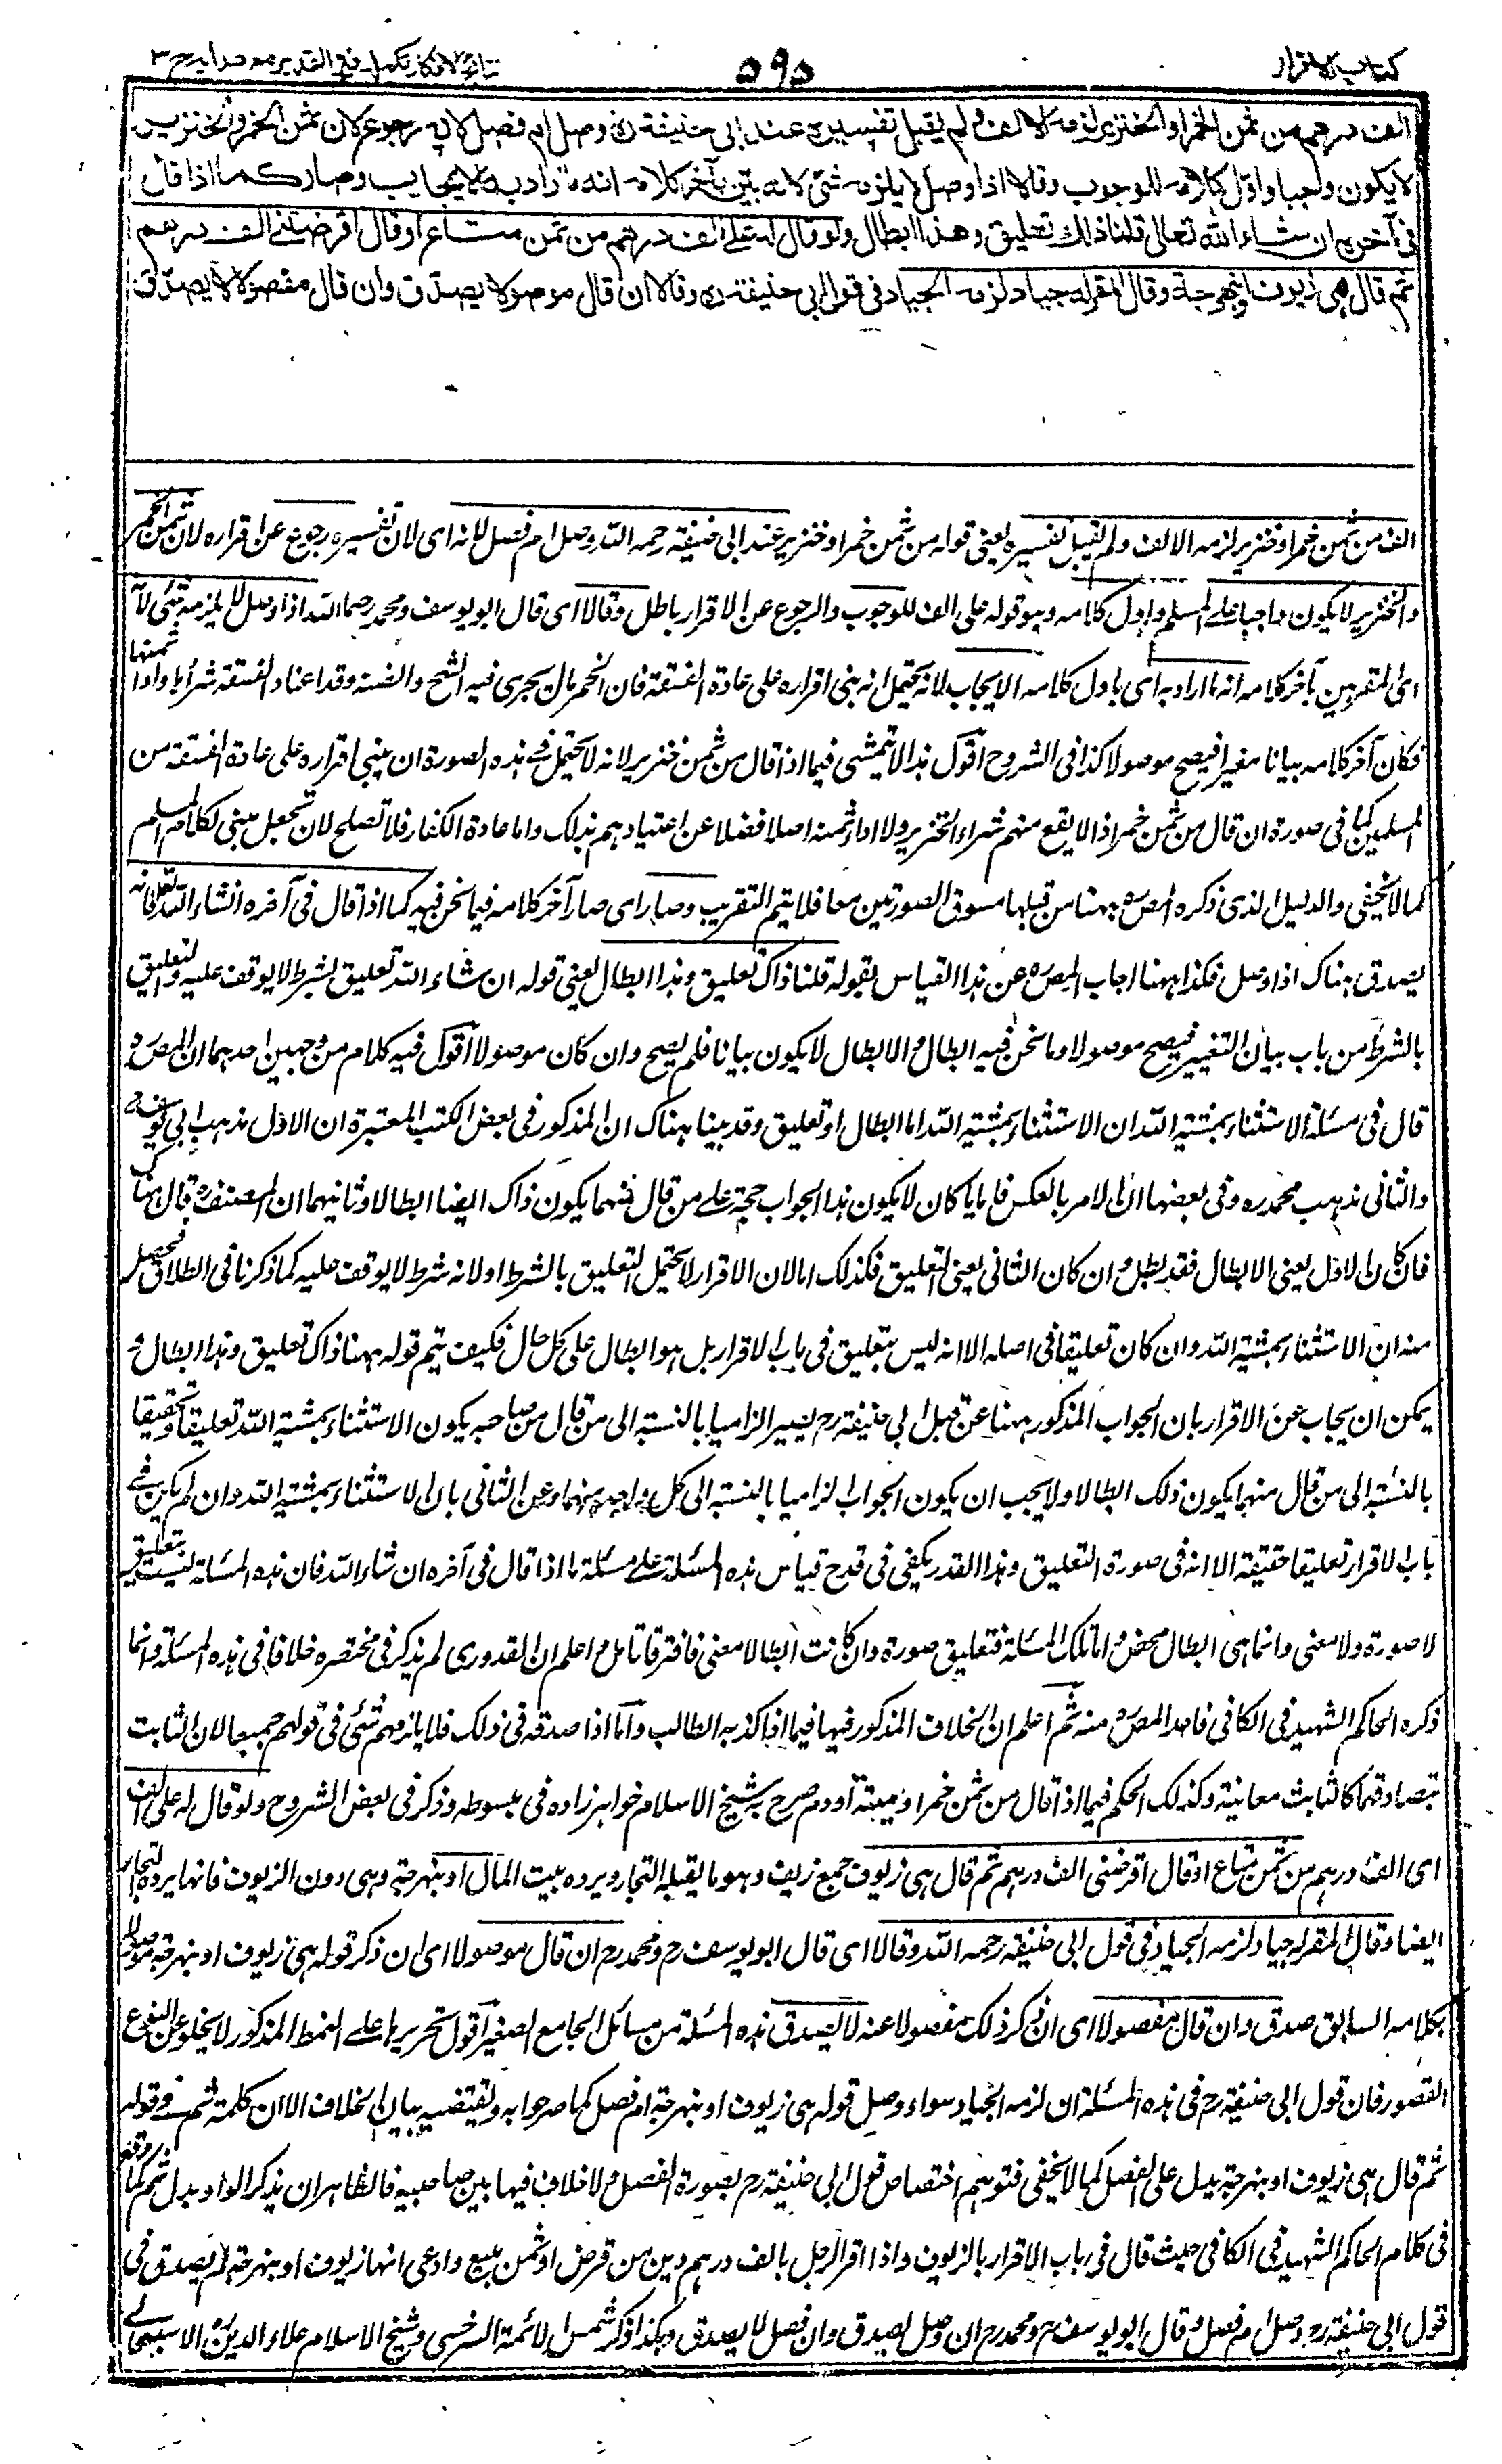 كتاب الاقرار ٥٩٥ نتائج الافكار تكملہ فتح القدير مع هدايہ ج ٣
الف درهم من ثمن الخمر او الخنزير لزمه الالف ولم يقبل تفسيره عند ابي حنيفة رہ وصل ام فصل لانه رجوع لان ثمن الخمر والخنزير
لا يكون واجبا واوّل كلامه للوجوب وقالا اذا وصل لا يلزمه شئ لانه بيّن بآخر كلامه انه ما اراد به الايجاب وصار كما اذا قال
فى آخره ان شاء الله تعالى قلنا ذاك تعليق وهذا ابطال ولو قال له علي الف درهم من ثمن متاع او قال اقرضنى الف درهم
ثم قال هى زيوف او نبهرجة وقال المقر له جياد لزمه الجياد فى قول ابي حنيفة رہ وقالا ان قال موصولا يصدّق وان قال مفصولا لا يصدّق
الف من ثمن خمر او خنزير لزمه الالف ولم يقبل تفسيره يعنى قوله من ثمن خمر او خنزير عند ابى حنيفة رحمه الله وصل ام فصل لانه اى لان تفسيره رجوع عن اقراره لان ثمن الخمر
والخنزير لا يكون واجبا على المسلم واول كلامه وهو قوله على الف للوجوب والرجوع عن الاقرار باطل وقالا اى قال ابو يوسف ومحمد رحمهما الله اذا وصل لا يلزمه شئ لانه
اى المقر بين بآخر كلامه انه ما اراد به اى باول كلامه الايجاب لانه يحتمل انه بنى اقراره على عادة الفسقة فان الخمر مال يجرى فيه الشح والضنه وقد اعتاد الفسقة شراءها واداء ثمنها
فكان آخر كلامه بيانا مغيرا فيصح موصولا كذا فى الشروح اقول هذا لا يتمشى فيما اذا قال من ثمن خنزير لانه لا يحتمل فى هذه الصورة ان يبنى اقراره على عادة الفسقة من
المسلمين كما فى صورة ان قال من ثمن خمر اذ لا يقع منهم شراء الخنزير ولا اداء ثمنه اصلا فضلا عن اعتيادهم بذلك واما عادة الكفار فلا تصلح لان تجعل مبنى لكلام المسلم
كما لا يخفى والدليل الذى ذكره المص رہ ههنا من قبلهما مسوق الصورتين معا فلا يتم التقريب وصار اى صار آخر كلامه فيما نحن فيه كما اذا قال فى آخره انشاء الله تعالى فانه
يصدق هناك اذا وصل فكذا ههنا اجاب المص رہ عن هذا القياس بقوله قلنا ذاك تعليق وهذا ابطال يعنى قوله ان شاء الله تعليق بشرط لا يوقف عليه والتعليق
بالشرط من باب بيان التغيير فيصح موصولا وما نحن فيه ابطال والابطال لا يكون بيانا فلم يصح وان كان موصولا اقول فيه كلام من وجهين احدهما ان المص رہ
قال فى مسئلة الاستثناء بمشية الله ان الاستثناء بمشية الله اما ابطال او تعليق وقد بينا هناك ان المذكور فى بعض الكتب المعتبرة ان الاول مذهب ابى يوسف رہ
والثانى مذهب محمد رہ وفى بعضها ان الامر بالعكس فايا ما كان لا يكون هذا الجواب حجة على من قال منهما يكون ذاك ايضا ابطالا وثانيهما ان المصنف رہ قال هناك
فان كان الاول يعنى الابطال فقد بطل وان كان الثانى يعنى التعليق فكذلك اما لان الاقرار لا يحتمل التعليق بالشرط او لانه شرط لا يوقف عليه كما ذكرنا فى الطلاق فحصل
منه ان الاستثناء بمشية الله وان كان تعليقا فى اصله الا انه ليس بتعليق فى باب الاقرار بل هو ابطال على كل حال فكيف يتم قوله ههنا ذاك تعليق وهذا ابطال و
يمكن ان يجاب عن الاقرار بان الجواب المذكور ههنا عن قبل ابى حنيفة رح يصير الزاميا بالنسبة الى من قال من صاحبيه يكون الاستثناء بمشية الله تعليقا وتحقيقا
بالنسبة الى من قال منهما يكون ذلك ابطالا ولا يجب ان يكون الجواب الزاميا بالنسبة الى كل واحد منهما وعن الثانى بان الاستثناء بمشية الله وان لم يكن فى
باب الاقرار تعليقا حقيقة الا انه فى صورة التعليق وهذا القدر يكفى فى قدح قياس هذه المسئلة على مسئلة ما اذا قال فى آخره ان شاء الله فان هذه المسئلة ليست بتعليق
لا صورة ولا معنى وانما هى ابطال محض واما تلك المسئلة فتعليق صورة وان كانت ابطالا معنى فافترقا تامل واعلم ان القدورى لم يذكر فى مختصره خلافا فى هذه المسئلة وانما
ذكره الحاكم الشهيد فى الكافى فاخذ المص رہ منه ثم اعلم ان الخلاف المذكور فيها فيما اذا كذبه الطالب واما اذا صدقه فى ذلك فلا يلزمه شئ فى قولهم جميعا لان الثابت
بتصادقهما كالثابت معاينة وكذلك الحكم فيما اذا قال من ثمن خمر او ميتة او دم صرح به شيخ الاسلام خواهر زاده فى مبسوطه وذكر فى بعض الشروح ولو قال له على الف
اى الف درهم من ثمن متاع او قال اقرضنى الف درهم ثم قال هى زيوف جمع زيف وهو ما يقبله التجار ويرده بيت المال او نبهرجة وهى دون الزيوف فانها يرده التجار
ايضا وقال المقر له جياد لزمه الجياد فى قول ابى حنيفة رحمه الله وقالا اى قال ابو يوسف رح ومحمد رح ان قال موصولا اى ان ذكر قوله هى زيوف او نبهرجة موصولا
بكلامه السابق صدق وان قال مفصولا اى ان ذكر ذلك مفصولا عنه لا يصدق هذه المسئلة من مسائل الجامع الصغير اقول تحريرها على النمط المذكور لا يخلو عن نوع
القصور فان قول ابى حنيفة رح فى هذه المسئلة ان لزمه الجياد سواء وصل قوله هى زيوف او نبهرجة ام فصل كما صرحوا به ويقتضيه بيان الخلاف الا ان كلمة ثم فى قوله
ثم قال هى زيوف او نبهرجة يدل على الفصل كما لا يخفى فتوهم اختصاص قول ابى حنيفة رح بصورة الفصل ولا خلاف فيها بين صاحبيه فالظاهر ان يذكر الواو بدل ثم كما وقع
فى كلام الحاكم الشهيد فى الكافى حيث قال فى باب الاقرار بالزيوف واذا اقر الرجل بالف درهم دين من قرض او ثمن بيع وادعى انها زيوف او نبهرجة لم يصدق فى
قول ابى حنيفة رہ وصل ام فصل وقال ابو يوسف رح ومحمد رح ان وصل يصدق وان فصل لا يصدق وهكذا ذكر شمس الائمة السرخسى وشيخ الاسلام علاء الدين رہ الاسبيجابى